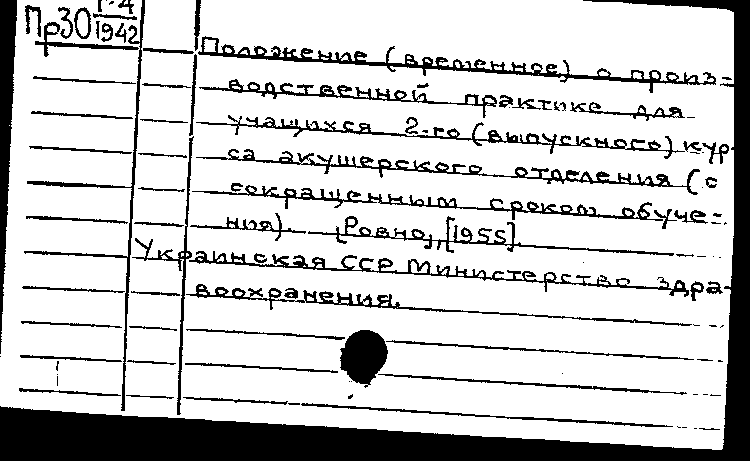 Пр30 Г-4
1942
Положение (временное) о произ=
водственной практике для
учащихся 2-го (выпускного) кур-
са акушерского отделения (с
сокращенным сроком обуче=
ния). [Ровно], [1955].
Украинская ССР. Министерство здра-
воохранения.